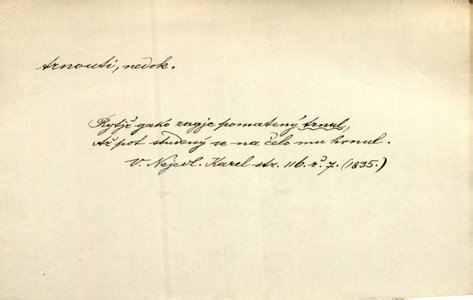 trnouti, nedok.
Rytjř gako zagjc pomatený trnul,
Až pot studený se na čelo mu hrnul.
V. Nejedl. Karel str. 116. ř. 7. (1835.)